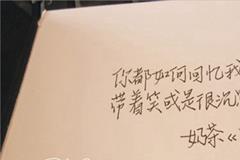 你都如何回忆我
带着笑或是很沉
奶茶《